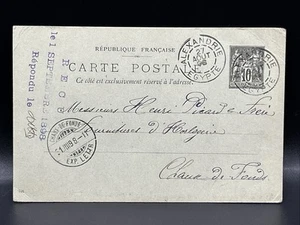 RÉPUBLIQUE FRANÇAISE
CARTE POSTALE
Ce côté est exclusivement réservé à l'adresse.
ALEXANDRIE
27
AOUT
98
EGYPTE
10
REÇU
le 1 SEPTEMBRE 1898
Répondu le
Messieurs Henri Picard & Frère
Fournitures d'Horlogerie
Chaux de Fonds
CHAUX-DE-FONDS
EXP. LETTR.